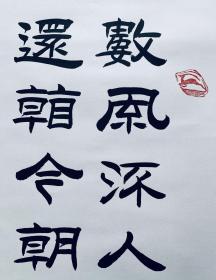 數風流人
還看今朝